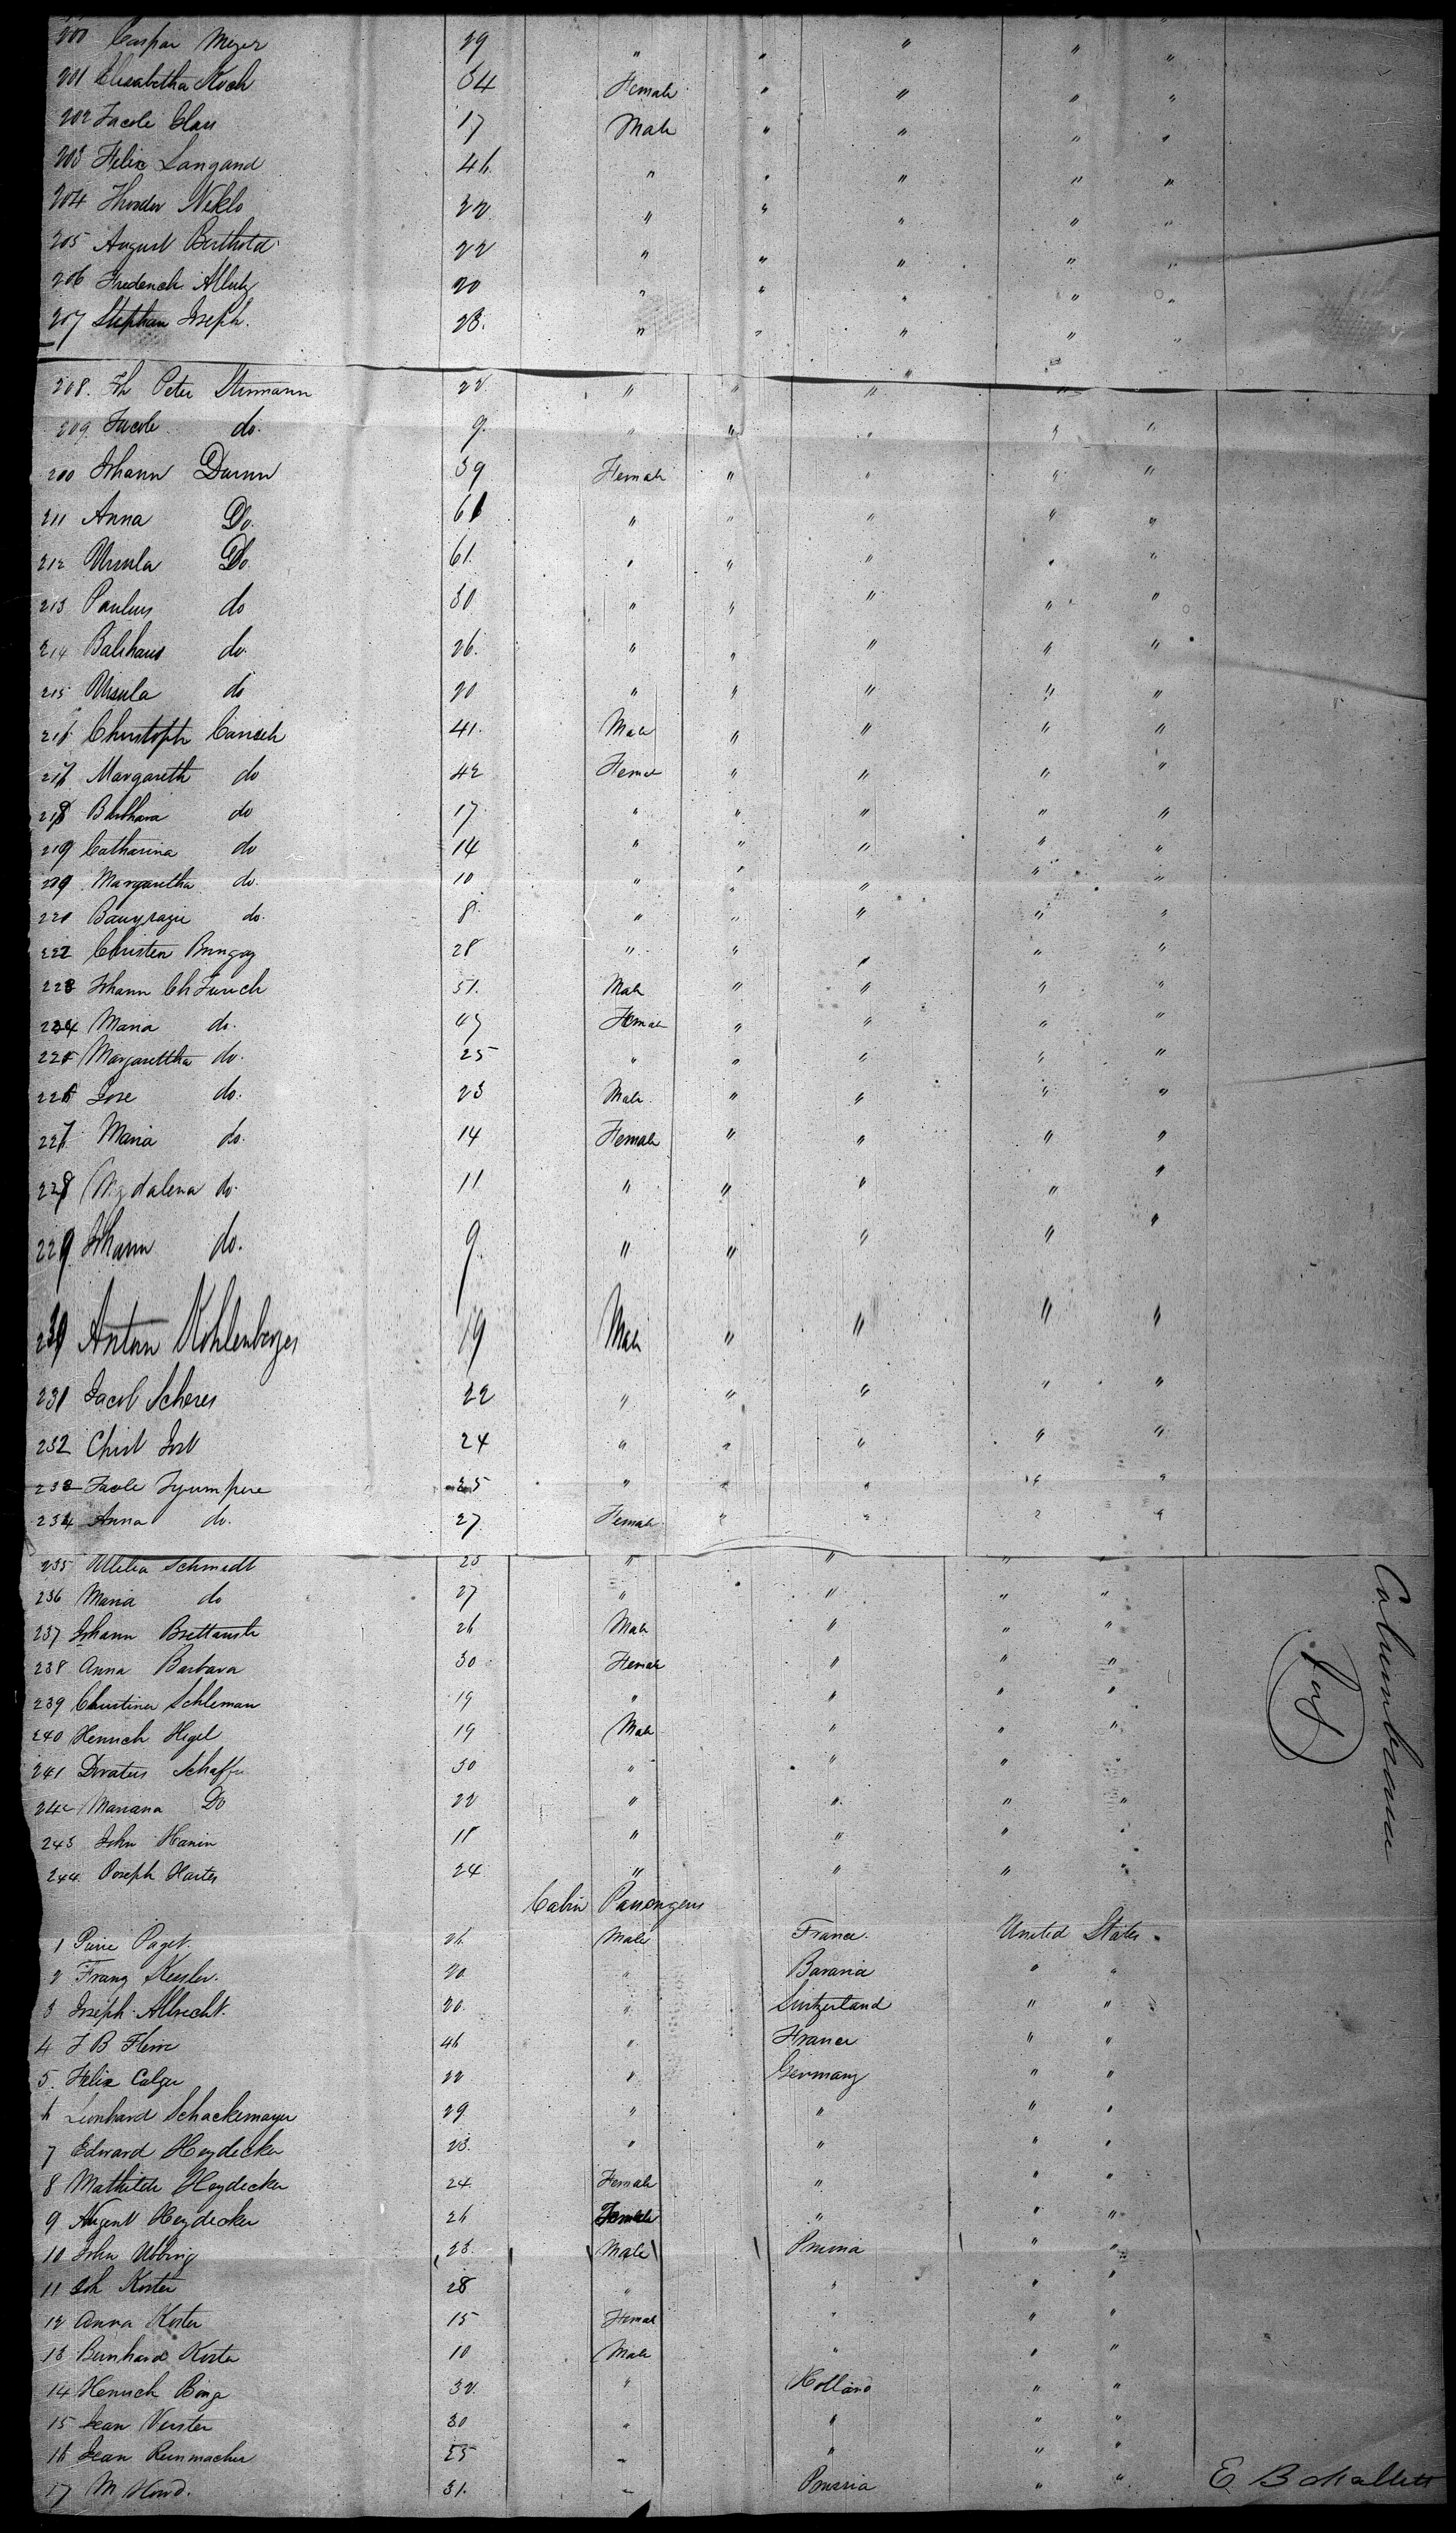 200 Caspar Meyer 29 " " " " "
201 Elisabetha Koch 34 Female " " " "
202 Jacob Glau 17 Male " " " "
203 Felix Langand 46 " " " " "
204 Theodor Niklo 22 " " " " "
205 August Berthold 22 " " " " "
206 Frederich 20 " " " " "
207 Stephan Joseph. 23. " " " " "
208. Joh Peter Stinmann 22 " " " "
209. Jacob do. 9. " " " " "
200 Johann Durm 39 Female " " " "
211 Anna Do. 61 " " " " "
212 Ursula Do 61. " " " " "
213 Paulus do 30 " " " " "
214 Balthaus do. 26. " " " " "
215 Ursula do 20 " " " " "
216 Christoph Carisch 41. Male " " " "
217 Margareth do 42 Female " " " "
218 Barbara do 17. " " " " "
219 Catharina do 14 " " " " "
219 Margaretha do. 10 " " " " "
220 do. 8. " " " " "
222 Christen 28 " " " " "
223 Johann Ch Zurich 51. Male " " " "
224 Maria do. 47 Female " " " "
225 Margarettha do. 25 " " " " "
226 Jose do. 23 Male. " " " "
227 Maria do. 14 Female " " " "
228 Magdalena do. 11 " " " " "
229 Johann do. 9. " " " " "
230 Anton Kohlenberger 19 Male " " " "
231 Jacob Scherer 22 " " " " "
232 Christ Jost 24 " " " " "
233 Jacob 35 " " " " "
234 Anna do. 27 Female " " " "
235 Schmidt 25 " " "
236 Maria do 27 " " " "
237 Johann 26 Male " " "
238 Anna Barbara 30 Female " " "
239 Christina Schleman 19 " " " "
240 Henrich Hegel 19 Male " " "
241 Donatus Schaffer 30 " " " "
242 Mariana Do 22 " " " "
243 John Hanin 18 " " " "
244. Joseph Harter 24 " " " "
Cabin Passengers
1 Pierre Paget. 26. Male France. United States.
2 Franz Kessler. 20. " Bavaria " "
3 Joseph Albrecht. 20. " Switzerland " "
4 J B 46 " France " "
5. Felix Calger 22 " Germany " "
6 Leonhard Schackemayer 29 " " " "
7 Edward Heydecker 23. " " " "
8 Mathilde Heydecker 24. Female " " "
9 August Heydecker 26 Female " " "
10 John Ubbing 23. Male Prussia " "
11 Joh Koster 28 " " " "
12 Anna Koster 15 Female " " "
13 Bernhard Koster 10 Male " " "
14 Henrich 32. " Holland " "
15 Jean Verster 30 " " " "
16 Jean Reinmacher 25 " " " "
17 M Howd. 31. " Prussia " "
Columbiana
E B Mallett